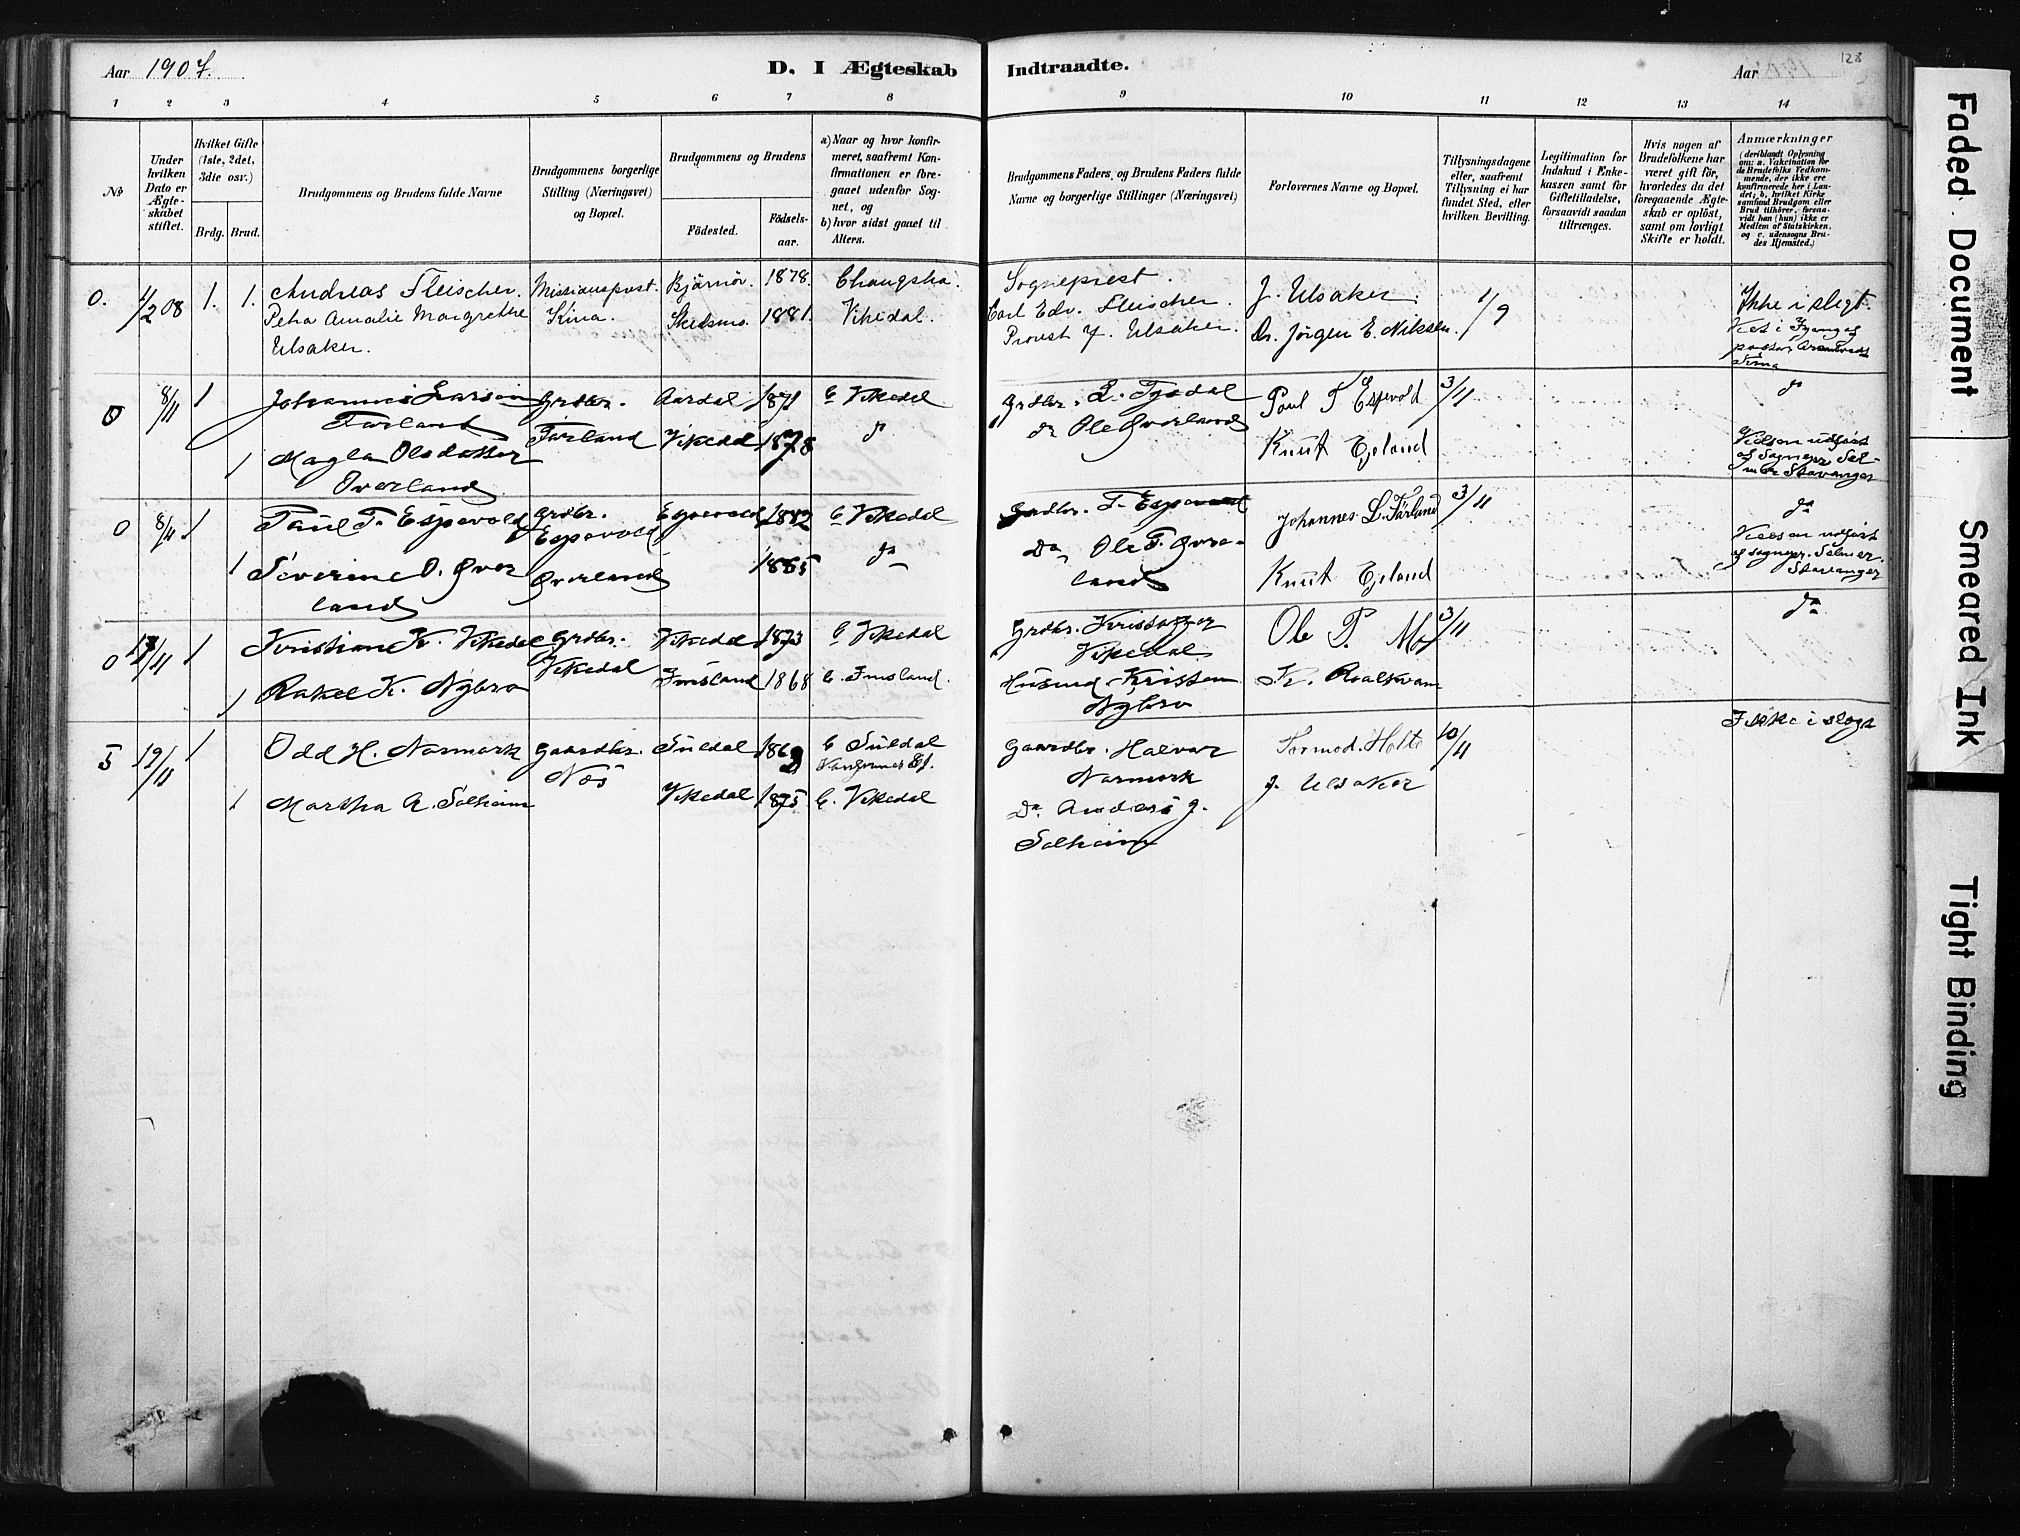 Aar 1907.
D. I Ægteskab Indtraadte.
Aar
128
1 2 3 4 5 6 7 8 9 10 11 12 13 14
No
Under hvilken Dato er Ægteskabet stiftet.
Hvilket Gifte (1ste, 2det, 3die osv.)
Brdg. Brud.
Brudgommens og Brudens fulde Navne
Brudgommens borgerlige Stilling (Næringsvei) og Bopæl.
Brudgommens og Brudens
Födested.
Födsels-aar.
a) Naar og hvor konfirmeret, saafremt Konfirmationen er foregaaet udenfor Sognet, og
b) hvor sidst gaaet til Alters.
Brudgommens Faders, og Brudens Faders fulde Navne og borgerlige Stillinger (Næringsvei)
Forlovernes Navne og Bopæl.
Tillysningsdagene eller, saafremt Tillysning ei har fundet Sted, efter hvilken Bevilling.
Legitimation for Indskud i Enkekassen samt for Giftetilladelse, forsaavidt saadan tiltrænges.
Hvis nogen af Brudefolkene har været gift för, hvorledes da det foregaaende Ægteskab er oplöst, samt om lovligt Skifte er holdt.
Anmærkninger
(deriblandt Oplysning om: a. Vakcination for de Brudefolks Vedkommende, der ikke ere konfirmerede her i Landet; b. hvilket Kirkesamfund Brudgom eller Brud tilhörer, forsaavidt han (hun) ikke er Medlem af Statskirken, og c. udensogns Brudes Hjemsted.)
0. 1/2 08 1. 1. Andreas Fleischer. Missionsprest. Bjørnör. 1878. Changsha. Sogneprest
Petra Amalie Margrethe Kina. Skedsmo. 1881. Vikedal. Carl Edv. Fleischer. J. Ulsaker. 1/9 Ikke i slegt.
Ulsaker. Provst J. Ulsaker. Dr. Jörgen E. Niksen.
0 8/11 1 Johannes Larsen Grdbr. Aardal 1871 C Vikedal Grdbr. L. Tysdal Paul T Espevold 3/11 do
Førland Førland Vikedal 1878 do do Ole Øverland
1 Magla Olsdatter Knut Egeland Vielsen udført
Øverland af Sognepr. Sel-
mer Stavanger
0 8/11 1 Paul T. Espevold Grdbr. Espevold 1882 C Vikedal Grdbr. T. Espevold Johannes L. Førland 3/11 do
Espevold
1 Severine O. Øver Øverland 1885 do Do Ole T. Øver- Knut Egeland Vielsen udført
land land af sognepr. Selmer.
Stavanger
0 1/11 1 Kristiane K. Vikedal Grdbr. Vikedal 1873 C Vikedal Grdbr. Kristoffer Ole P. Mo 3/11 do
Vikedal Vikedal
1 Rakel K. Nybro Imsland 1868 C. Imsland. Husmd. Kristen K. Roalkvam
Nybro
5 19/11 1 Odd H. Narmork Gaardbr. Suldal 1869 C Suldal Gaardbr. Halvar Tormod. Holte 10/11 Ikke i slegt
Næs Narmork
1 Martha A. Solheim Vikedal 1875 C. Vikedal Do. Anders J. J. Ulsaker
Solheim
Faded Document
Smeared Ink
Tight Binding